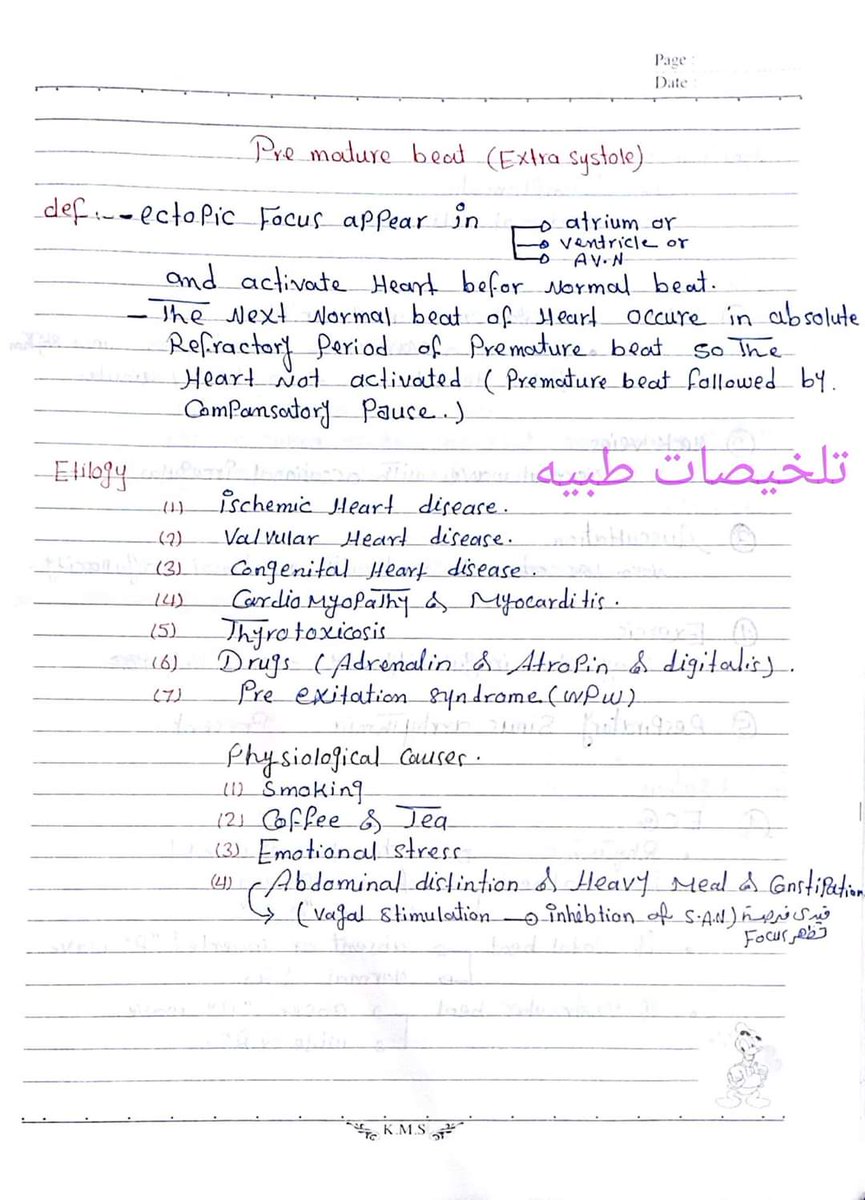 Page :
Date :
Pre mature beat (Extra systole)
def:- - ectopic Focus appear in atrium or
ventricle or
AV.N
and activate Heart befor Normal beat.
- The Next Normal beat of Heart occure in absolute
Refractory Period of Premature beat so The
Heart Not activated (Premature beat followed by
Compansatory Pause.)
Etilogy
تلخيصات طبيه
(1) ischemic Heart disease.
(2) Valvular Heart disease.
(3) Congenital Heart disease.
(4) Cardiomyopathy & Myocarditis.
(5) Thyrotoxicosis
(6) Drugs (Adrenalin & Atropin & digitalis).
(7) Pre exitation syndrome (WPW)
Physiological causes.
(1) Smoking
(2) Coffee & Tea
(3) Emotional stress
(4) Abdominal distintion & Heavy Meal & Constipation
(vagal stimulation → inhibtion of S.A.N) فيدى فرصة
Focus تظهر
K.M.S